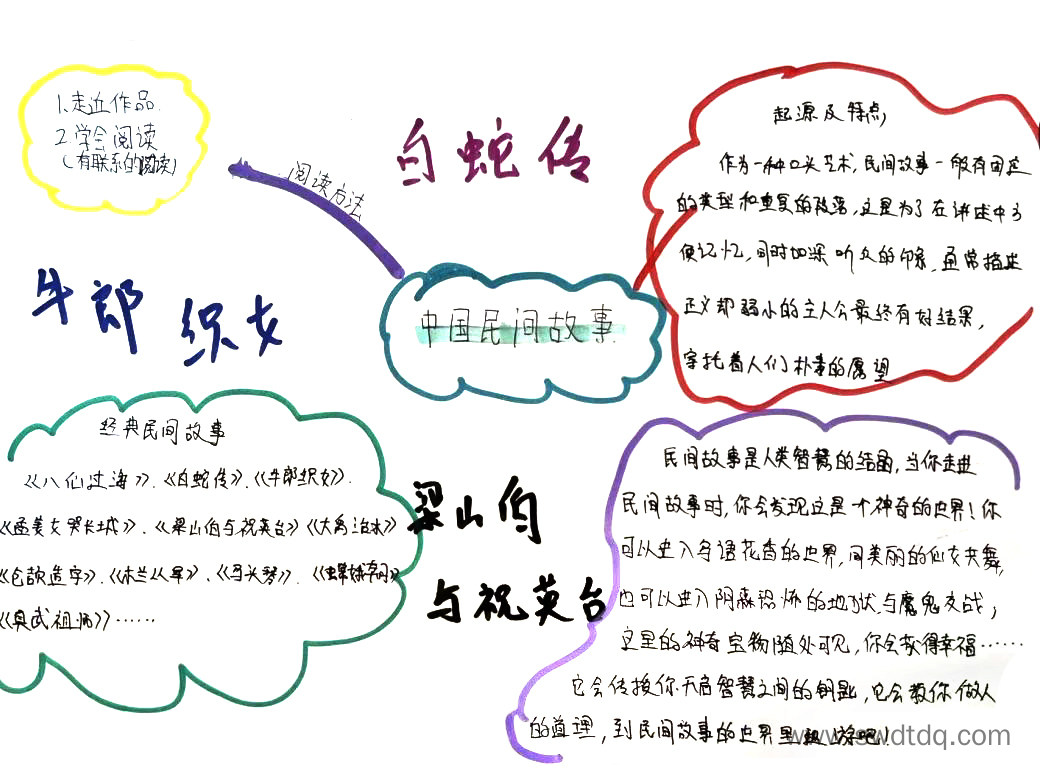 1.走近作品
2.学会阅读
(有联系的阅读)
阅读方法
白蛇传
牛郎织女
中国民间故事
起源及特点
作为一种口头艺术,民间故事一般有固定
的类型和重复的段落,这是为了在讲述中方
便记忆,同时加深听众的印象,通常描述
正义却弱小的主人公最终有好结果,
寄托着人们朴素的愿望
经典民间故事
《八仙过海》、《白蛇传》、《牛郎织女》、
《孟姜女哭长城》、《梁山伯与祝英台》《大禹治水》
《仓颉造字》、《木兰从军》、《马头琴》、《蝴蝶泉》
《真武祖师》……
梁山伯
与祝英台
民间故事是人类智慧的结晶,当你走进
民间故事时,你会发现这是个神奇的世界!你
可以进入鸟语花香的世界,同美丽的仙女共舞,
也可以进入阴森恐怖的地狱,与魔鬼交战;
这里的神奇宝物随处可见,你会获得幸福……
它会传授你开启智慧之间的钥匙,它会教你做人
的道理,到民间故事的世界里
www.swdtdq.com